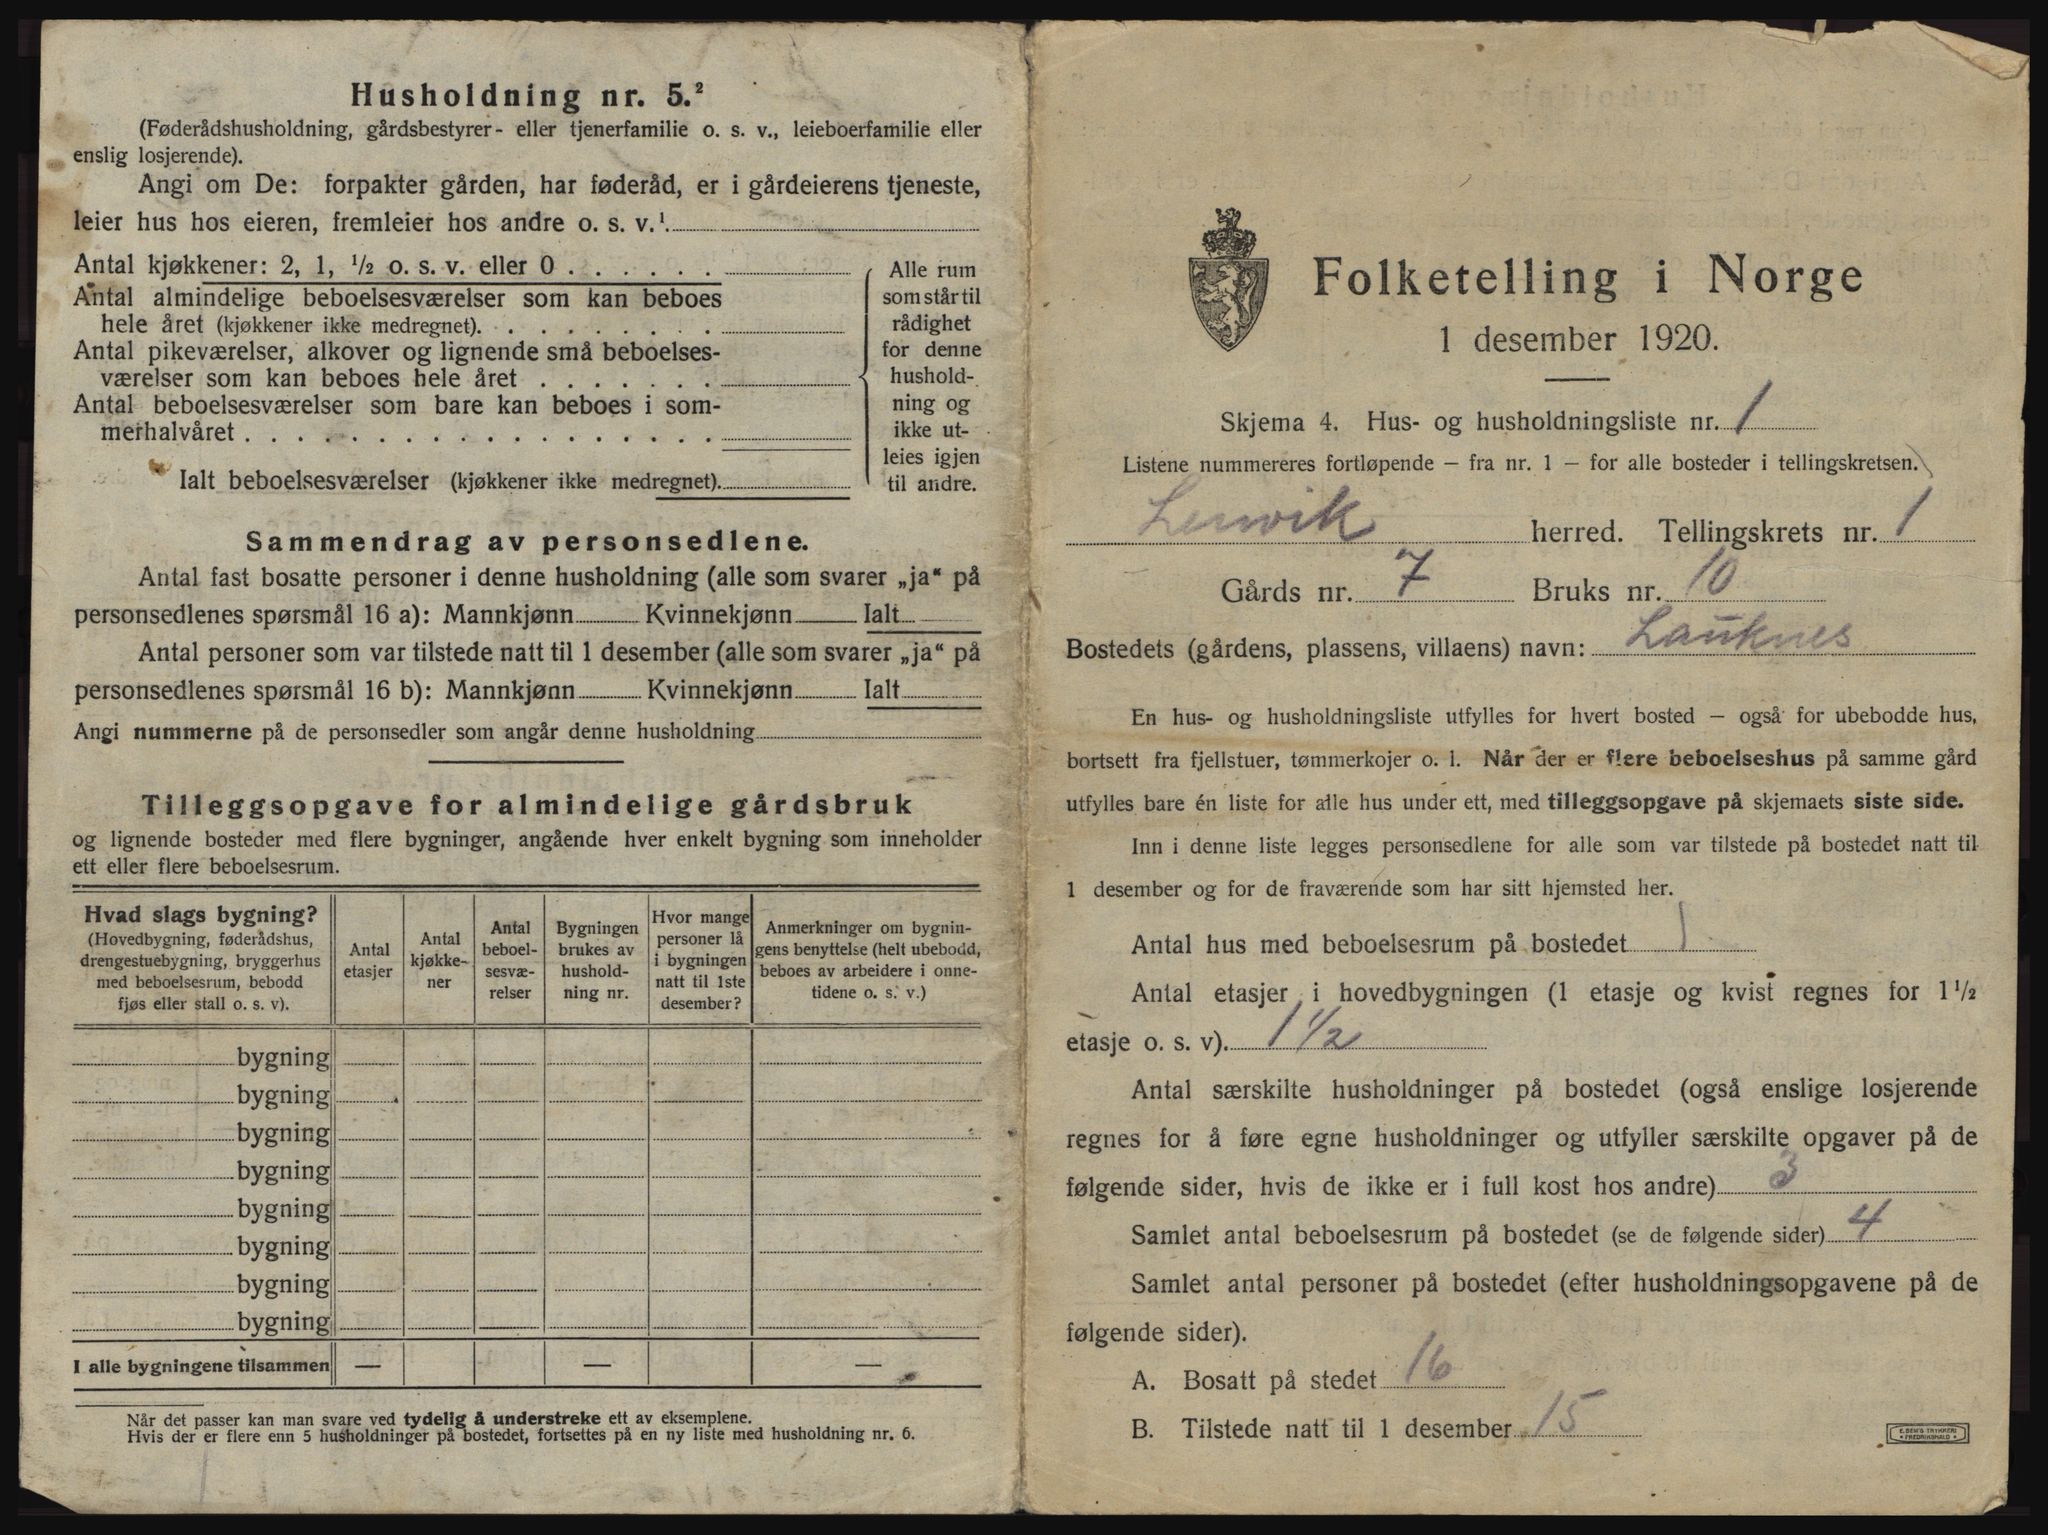 Husholdning nr. 5.²
(Føderådshusholdning, gårdsbestyrer- eller tjenerfamilie o. s. v., leieboerfamilie eller
enslig losjerende).
Angi om De: forpakter gården, har føderåd, er i gårdeierens tjeneste,
leier hus hos eieren, fremleier hos andre o. s. v.¹
Antal kjøkkener: 2, 1, ½ o. s. v. eller 0 . . . . . .
Antal almindelige beboelsesværelser som kan beboes
hele året (kjøkkener ikke medregnet). . . . . . . . .
Antal pikeværelser, alkover og lignende små beboelses-
værelser som kan beboes hele året . . . . . . .
Antal beboelsesværelser som bare kan beboes i som-
merhalvåret . . . . . . . . . . . . . . . . . .
Ialt beboelsesværelser (kjøkkener ikke medregnet).
Alle rum
som står til
rådighet
for denne
hushold-
ning og
ikke ut-
leies igjen
til andre.
Sammendrag av personsedlene.
Antal fast bosatte personer i denne husholdning (alle som svarer „ja“ på
personsedlenes spørsmål 16 a): Mannkjønn Kvinnekjønn Ialt
Antal personer som var tilstede natt til 1 desember (alle som svarer „ja“ på
personsedlenes spørsmål 16 b): Mannkjønn Kvinnekjønn Ialt
Angi nummerne på de personsedler som angår denne husholdning
Tilleggsopgave for almindelige gårdsbruk
og lignende bosteder med flere bygninger, angående hver enkelt bygning som inneholder
ett eller flere beboelsesrum.
Hvad slags bygning?
(Hovedbygning, føderådshus,
drengestuebygning, bryggerhus
med beboelsesrum, bebodd
fjøs eller stall o. s. v).
Antal
etasjer
Antal
kjøkke-
ner
Antal
beboel-
sesvæ-
relser
Bygningen
brukes av
hushold-
ning nr.
Hvor mange
personer lå
i bygningen
natt til 1ste
desember?
Anmerkninger om bygnin-
gens benyttelse (helt ubebodd,
beboes av arbeidere i onne-
tidene o. s. v.)
bygning
bygning
bygning
bygning
bygning
bygning
bygning
bygning
I alle bygningene tilsammen — — —
Når det passer kan man svare ved tydelig å understreke ett av eksemplene.
Hvis der er flere enn 5 husholdninger på bostedet, fortsettes på en ny liste med husholdning nr. 6.
Folketelling i Norge
1 desember 1920.
Skjema 4. Hus- og husholdningsliste nr. 1
Listene nummereres fortløpende — fra nr. 1 — for alle bosteder i tellingskretsen.
Lenvik herred. Tellingskrets nr. 1
Gårds nr. 7 Bruks nr. 10
Bostedets (gårdens, plassens, villaens) navn: Lauknes
En hus- og husholdningsliste utfylles for hvert bosted — også for ubebodde hus,
bortsett fra fjellstuer, tømmerkojer o. l. Når der er flere beboelseshus på samme gård
utfylles bare én liste for alle hus under ett, med tilleggsopgave på skjemaets siste side.
Inn i denne liste legges personsedlene for alle som var tilstede på bostedet natt til
1 desember og for de fraværende som har sitt hjemsted her.
Antal hus med beboelsesrum på bostedet 1
Antal etasjer i hovedbygningen (1 etasje og kvist regnes for 1½
etasje o. s. v). 1½
Antal særskilte husholdninger på bostedet (også enslige losjerende
regnes for å føre egne husholdninger og utfyller særskilte opgaver på de
følgende sider, hvis de ikke er i full kost hos andre) 3
Samlet antal beboelsesrum på bostedet (se de følgende sider) 4
Samlet antal personer på bostedet (efter husholdningsopgavene på de
følgende sider).
A. Bosatt på stedet 16
B. Tilstede natt til 1 desember 15
E. SEM'S TRYKKERI
• FREDRIKSHALD •